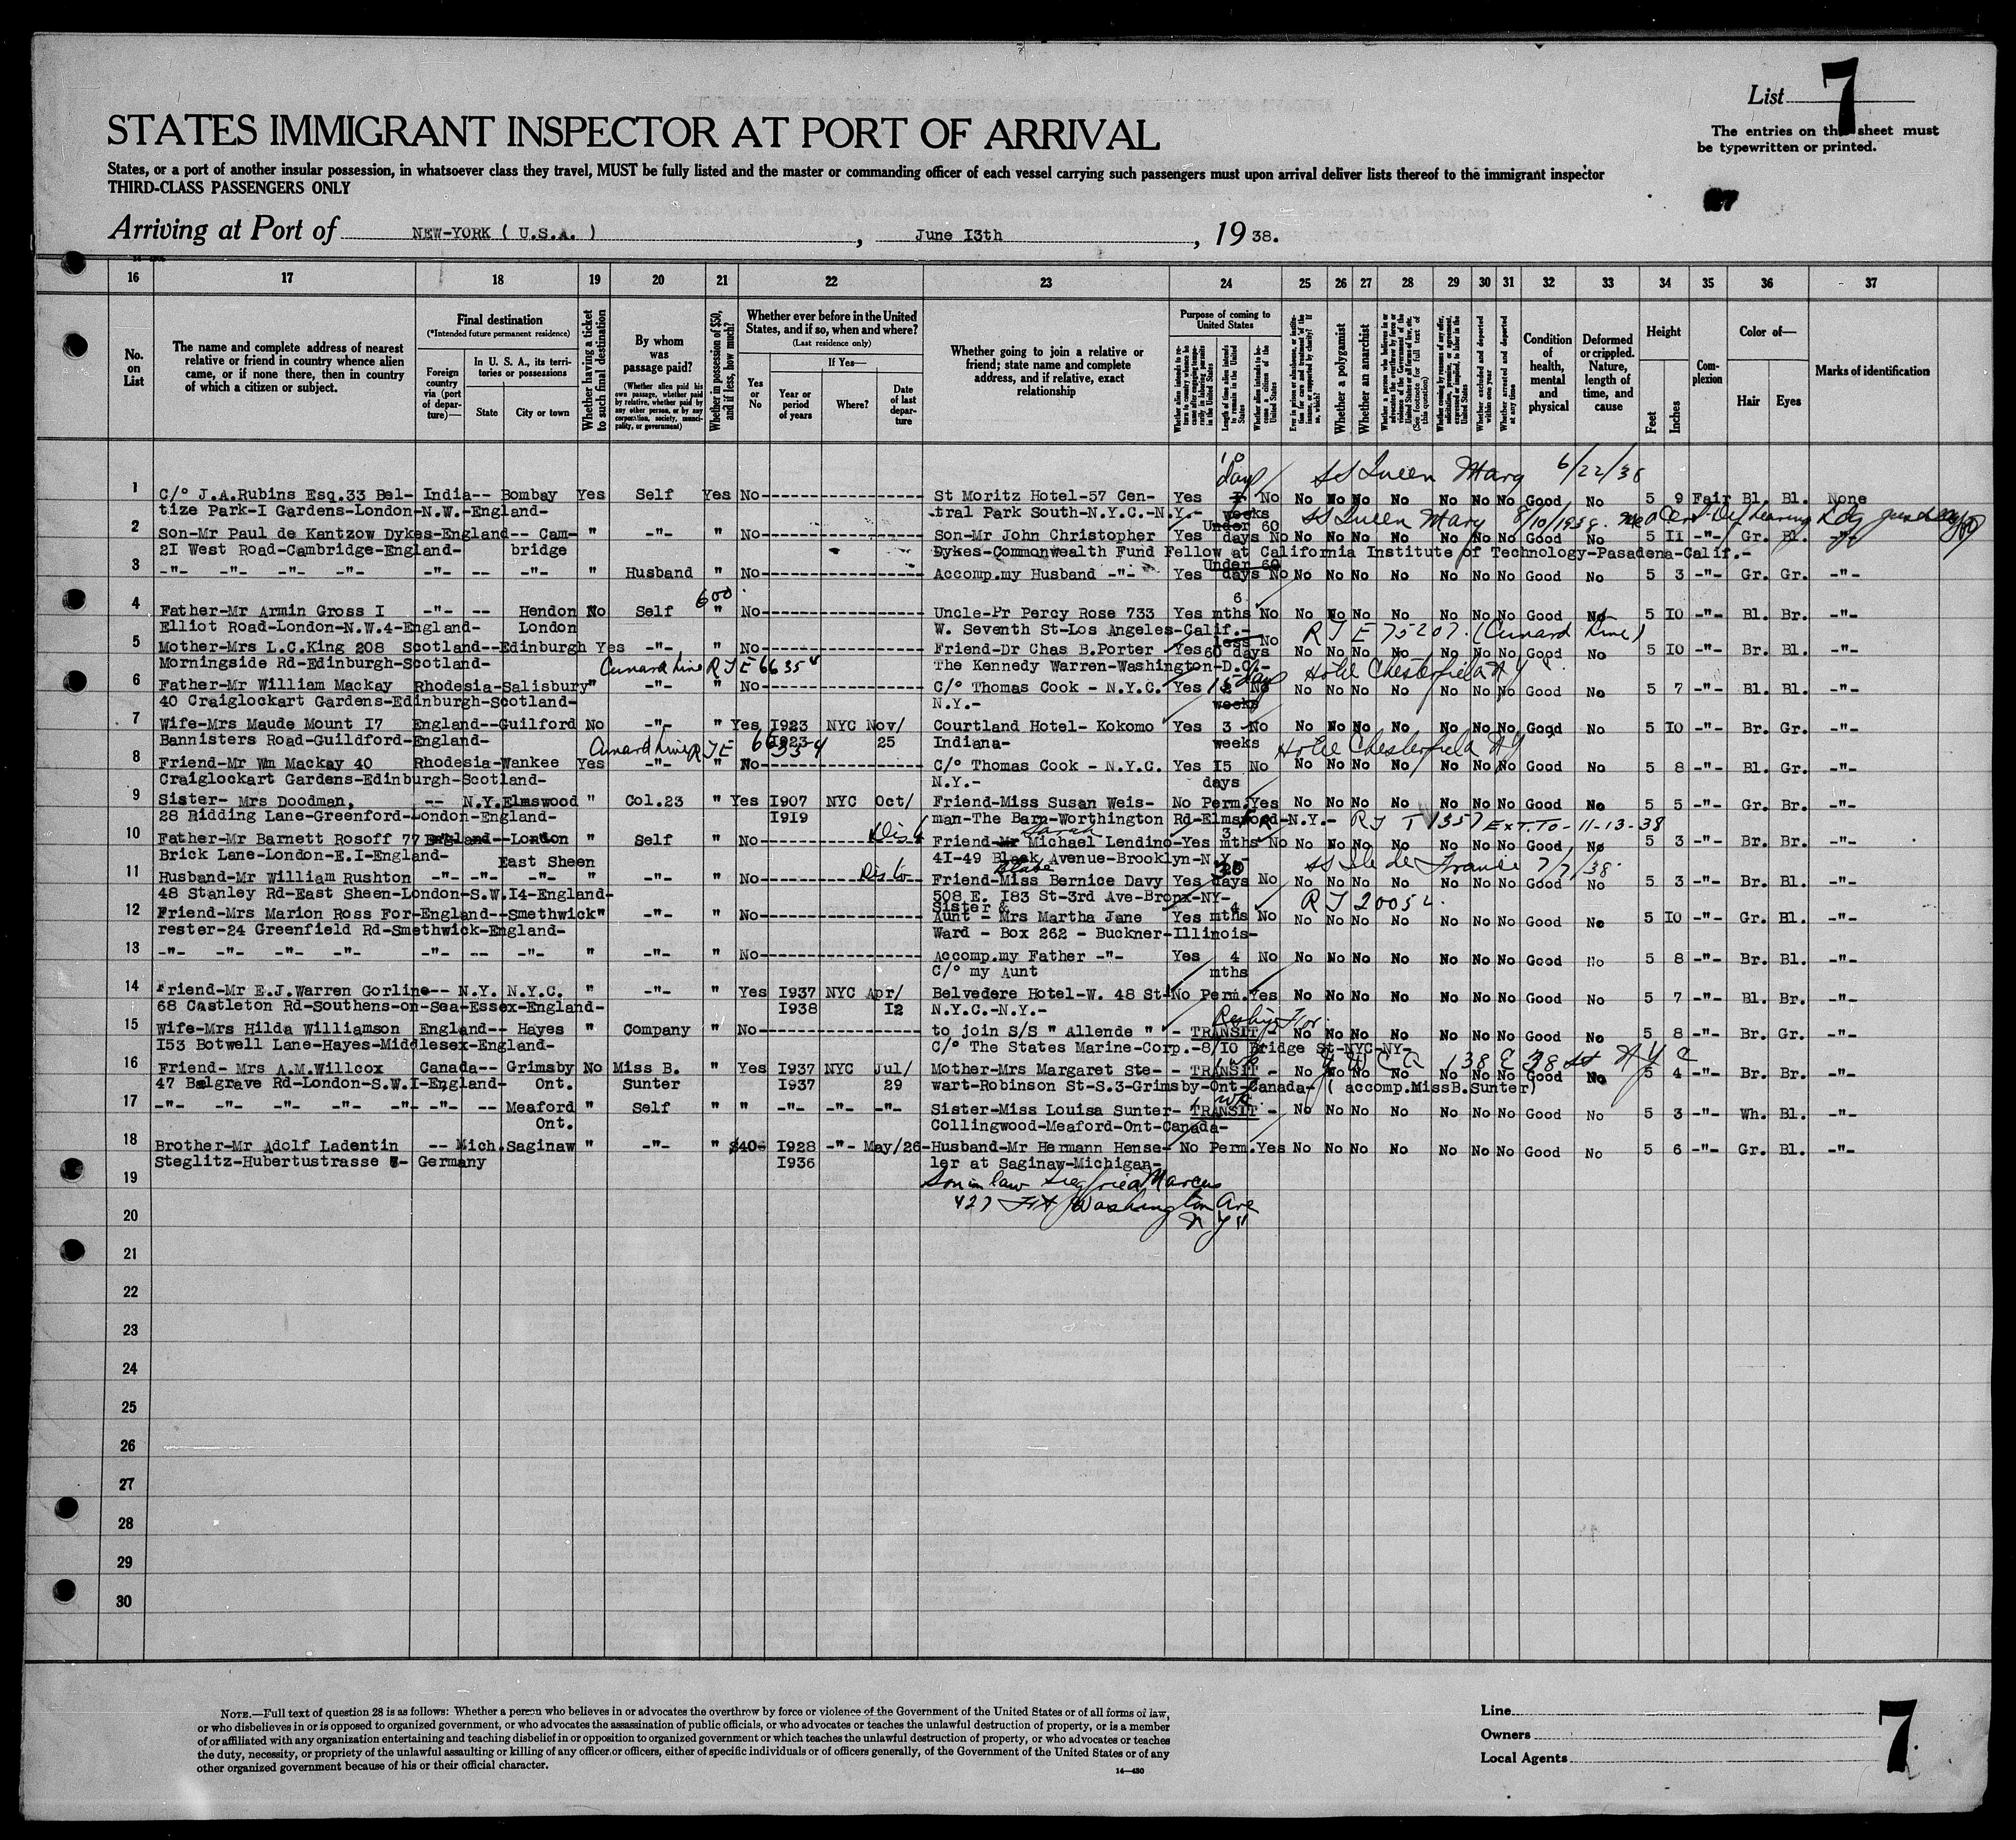 List 7
The entries on this sheet must
be typewritten or printed.
STATES IMMIGRANT INSPECTOR AT PORT OF ARRIVAL
States, or a port of another insular possession, in whatsoever class they travel, MUST be fully listed and the master or commanding officer of each vessel carrying such passengers must upon arrival deliver lists thereof to the immigrant inspector
THIRD-CLASS PASSENGERS ONLY
Arriving at Port of NEW-YORK ( U.S.A. ) , June I3th , 19 38.
16 17 18 19 20 21 22 23 24 25 26 27 28 29 30 31 32 33 34 35 36 37
No. on List
The name and complete address of nearest relative or friend in country whence alien came, or if none there, then in country of which a citizen or subject.
Final destination
(*Intended future permanent residence)
Foreign country via (port of departure)—
In U. S. A., its territories or possessions
State City or town
Whether having a ticket to such final destination
By whom was passage paid?
(Whether alien paid his own passage, whether paid by relative, whether paid by any other person, or by any corporation, society, municipality, or government)
Whether in possession of $50, and if less, how much?
Whether ever before in the United States, and if so, when and where?
(Last residence only)
Yes or No
If Yes—
Year or period of years
Where?
Date of last departure
Whether going to join a relative or friend; state name and complete address, and if relative, exact relationship
Purpose of coming to United States
Length of time alien intends to remain in the United States
Whether alien intends to become a citizen of the United States
Whether a polygamist
Whether an anarchist
Whether excluded and deported within one year
Whether arrested and deported at any time
Condition of health, mental and physical
Deformed or crippled. Nature, length of time, and cause
Height
Feet Inches
Complexion
Color of—
Hair Eyes
Marks of identification
10 days SS Queen Mary 6/22/38
1 C/o J.A.Rubins Esq.33 Bel- India-- Bombay Yes Self Yes No St Moritz Hotel-57 Cen- Yes No No No No No No No No Good No 5 9 Fair Bl. Bl. None
tize Park-I Gardens-London-N.W.-England- tral Park South-N.Y.C.-N.Y.- weeks
SS Queen Mary 8/10/1938
2 Son-Mr Paul de Kantzow Dykes-England-- Cam- " -"- " No Son-Mr John Christopher Yes Under 60 days No No No No No No No No Good No 5 II -"- Gr. Bl. -"-
2I West Road-Cambridge-England- bridge Dykes-Commonwealth Fund Fellow at California Institute of Technology-Pasadena-Calif.-
3 -"- -"- -"- -"- -"- -- -"- " Husband " No Accomp.my Husband -"- Yes Under 60 days No No No No No No No No Good No 5 3 -"- Gr. Gr. -"-
600
4 Father-Mr Armin Gross I -"- -- Hendon No Self " No Uncle-Pr Percy Rose 733 Yes 6 mths No No No No No No No No Good No 5 IO -"- Bl. Br. -"-
Elliot Road-London-N.W.4-England- London W. Seventh St-Los Angeles-Calif.-
R J E 75207. (Cunard Line)
5 Mother-Mrs L.C.King 208 Scotland--Edinburgh Yes -"- " No Friend-Dr Chas B.Porter Yes less 60 days No No No No No No No No Good No 5 IO -"- Br. Bl. -"-
Morningside Rd-Edinburgh-Scotland- Cunard Line R J E 66354 The Kennedy Warren-Washington-D.C.-
15 days Hotel Chesterfield N Y
6 Father-Mr William Mackay Rhodesia-Salisbury " -"- " No C/o Thomas Cook - N.Y.C. Yes 2 No No No No No No No No Good No 5 7 -"- Bl. Bl. -"-
40 Craiglockart Gardens-Edinburgh-Scotland- N.Y.- weeks
7 Wife-Mrs Maude Mount I7 England--Guilford No -"- " Yes I923 NYC Nov/ Courtland Hotel- Kokomo Yes 3 No No No No No No No No Good No 5 IO -"- Br. Gr. -"-
Bannisters Road-Guildford-England- I923 25 Indiana- weeks
Cunard Line R J E 66354 Hotel Chesterfield N Y
8 Friend-Mr Wm Mackay 40 Rhodesia-Wankee Yes -"- " No C/o Thomas Cook - N.Y.C. Yes I5 No No No No No No No No Good No 5 8 -"- Bl. Gr. -"-
Craiglockart Gardens-Edinburgh-Scotland- N.Y.- days
9 Sister- Mrs Doodman, -- N.Y. Elmswood " Col.23 " Yes I907 NYC Oct/ Friend-Miss Susan Weis- No Perm. Yes No No No No No No No Good No 5 5 -"- Gr. Br. -"-
28 Ridding Lane-Greenford-London-England- I9I9 man-The Barn-Worthington Rd-Elmsford-N.Y.- R J T 1357 Ext. To- 11-13-38
10 Father-Mr Barnett Rosoff 77 England--London " Self " No Friend-Mr Sarah Michael Lendino-Yes 3 mths No No No No No No No No Good No 5 3 -"- Br. Br. -"-
Brick Lane-London-E.I-England- East Sheen 4I-49 Black Avenue-Brooklyn-N.Y.-
SS Ile de France 7/7/38.
11 Husband-Mr William Rushton -"- -"- -"- " -"- " No Friend-Miss Bernice Davy Yes days No No No No No No No No Good No 5 3 -"- Br. Bl. -"-
48 Stanley Rd-East Sheen-London-S.W.I4-England- 508 E. I83 St-3rd Ave-Bronx-NY-
Sister & R J 20052
12 Friend-Mrs Marion Ross For-England--Smethwick " -"- " No Aunt - Mrs Martha Jane Yes 4 mths No No No No No No No No Good No 5 IO -"- Gr. Bl. -"-
rester-24 Greenfield Rd-Smethwick-England- Ward - Box 262 - Buckner-Illinois-
13 -"- -"- -"- -"- -"- -- -"- " -"- " No Accomp.my Father -"- Yes 4 No No No No No No No No Good No 5 8 -"- Br. Bl. -"-
C/o my Aunt mths
14 Friend-Mr E.J.Warren Gorline-- N.Y. N.Y.C. " -"- " Yes I937 NYC Apr/ Belvedere Hotel-W. 48 St-No Perm. Yes No No No No No No No Good No 5 7 -"- Bl. Br. -"-
68 Castleton Rd-Southens-on-Sea-Essex-England- I938 I2 N.Y.C.-N.Y.-
15 Wife-Mrs Hilda Williamson England-- Hayes " Company " No to join S/S " Allende " - TRANSIT - No No No No No No No Good No 5 8 -"- Br. Gr. -"-
I53 Botwell Lane-Hayes-Middlesex-England- C/o The States Marine-Corp.-8/IO Bridge St-NYC-NY-
16 Friend- Mrs A.M.Willcox Canada-- Grimsby No Miss B. " Yes I937 NYC Jul/ Mother-Mrs Margaret Ste- - TRANSIT - No No No No No No No Good No 5 4 -"- Br. Br. -"-
47 Belgrave Rd-London-S.W.I-England- Ont. Sunter I937 29 wart-Robinson St-S.3-Grimsby-Ont-Canada- ( accomp.MissB.Sunter)
17 -"- -"- -"- -"- -"- -"- -- Meaford " Self " " -"- -"- -"- Sister-Miss Louisa Sunter- TRANSIT - No No No No No No No Good No 5 3 -"- Wh. Bl. -"-
Ont. Collingwood-Meaford-Ont-Canada-
18 Brother-Mr Adolf Ladentin -- Mich. Saginaw " -"- " $40- I928 -"- May/26-Husband-Mr Hermann Hense- No Perm. Yes No No No No No No No Good No 5 6 -"- Gr. Bl. -"-
Steglitz-Hubertustrasse - Germany I936 ler at Saginaw-Michigan-
19 Son in law Siegfried Marcus
20 427 Ft Washington Ave
N Y
21
22
23
24
25
26
27
28
29
30
NOTE.—Full text of question 28 is as follows: Whether a person who believes in or advocates the overthrow by force or violence of the Government of the United States or of all forms of law,
or who disbelieves in or is opposed to organized government, or who advocates the assassination of public officials, or who advocates or teaches the unlawful destruction of property, or is a member
of or affiliated with any organization entertaining and teaching disbelief in or opposition to organized government or which teaches the unlawful destruction of property, or who advocates or teaches
the duty, necessity, or propriety of the unlawful assaulting or killing of any officer or officers, either of specific individuals or of officers generally, of the Government of the United States or of any
other organized government because of his or their official character.
14—430
Line
Owners
Local Agents
7